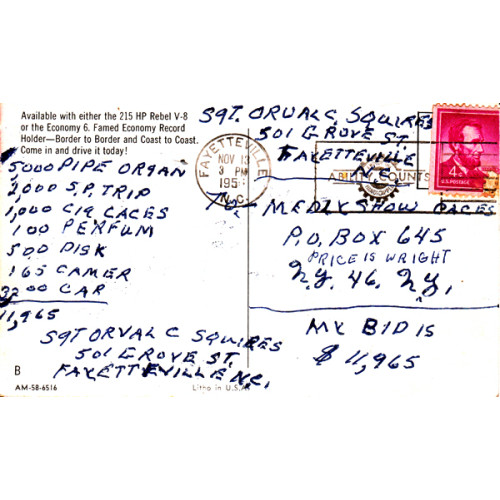 Available with either the 215 HP Rebel V-8
or the Economy 6. Famed Economy Record
Holder—Border to Border and Coast to Coast.
Come in and drive it today!
5000 PIPE ORGAN
1,000 S.P. TRIP
1,000 CIG CACES
100 PERFUM
500 DISK
165 CAMER
3200 CAR
11,965
SGT ORVAL C SQUIRES
501 GROVE ST.
FAYETTEVILLE N.C.
B
AM-58-6516
Litho in U.S.A.
SGT. ORVAL C. SQUIRES
501 GROVE ST.
FAYETTEVILLE
N.C.
FAYETTEVILLE
NOV 13
3 PM
195
N.C.
ABILITY COUNTS
4¢
U.S. POSTAGE
To
MEDLX SHOW CACES
P.O. BOX 645
PRICE IS WRIGHT
N.Y. 46, N.Y.
MY BID IS
$ 11,965